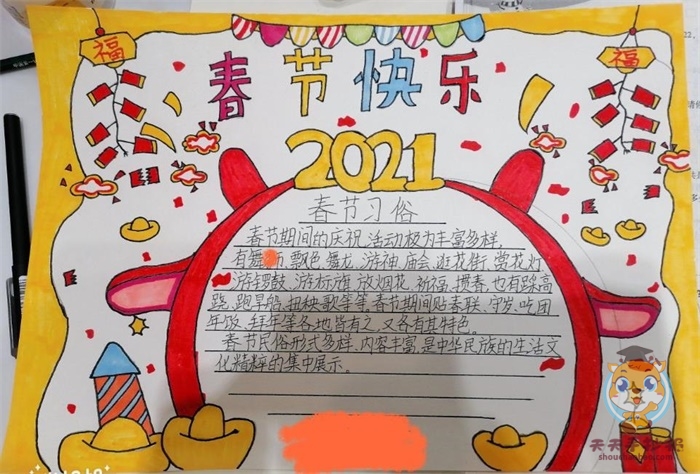 福
福
春节快乐
2021
春节习俗
春节期间的庆祝活动极为丰富多样,
有舞 飘色、舞龙、游神、庙会、逛花街、赏花灯
游锣鼓、游标旗、放烟花、祈福、掼春,也有踩高
跷、跑旱船、扭秧歌等等。春节期间贴春联、守岁、吃团
年饭、拜年等各地皆有之,又各有其特色。
春节民俗形式多样、内容丰富,是中华民族的生活文
化精粹的集中展示。
天天手抄报